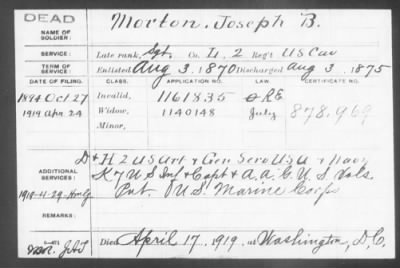 DEAD
NAME OF SOLDIER: Morton, Joseph B.
SERVICE: Late rank, Sgt. Co. L, 2 Reg't US Cav
TERM OF SERVICE: Enlisted Aug 3, 1870 Discharged Aug 3, 1875
DATE OF FILING. CLASS. APPLICATION NO. LAW. CERTIFICATE NO.
1894 Oct 27 Invalid, 1161835
1919 Apr. 24 Widow, 1140148 July 878,969
Minor,
ADDITIONAL SERVICES: D + H 2 US Art + Gen Serv USA + Navy
K 7 U S Inf + Capt + A.A.G. U S Vols.
Pvt U.S. Marine Corps
REMARKS:
Died April 17, 1919, at Washington, D.C.